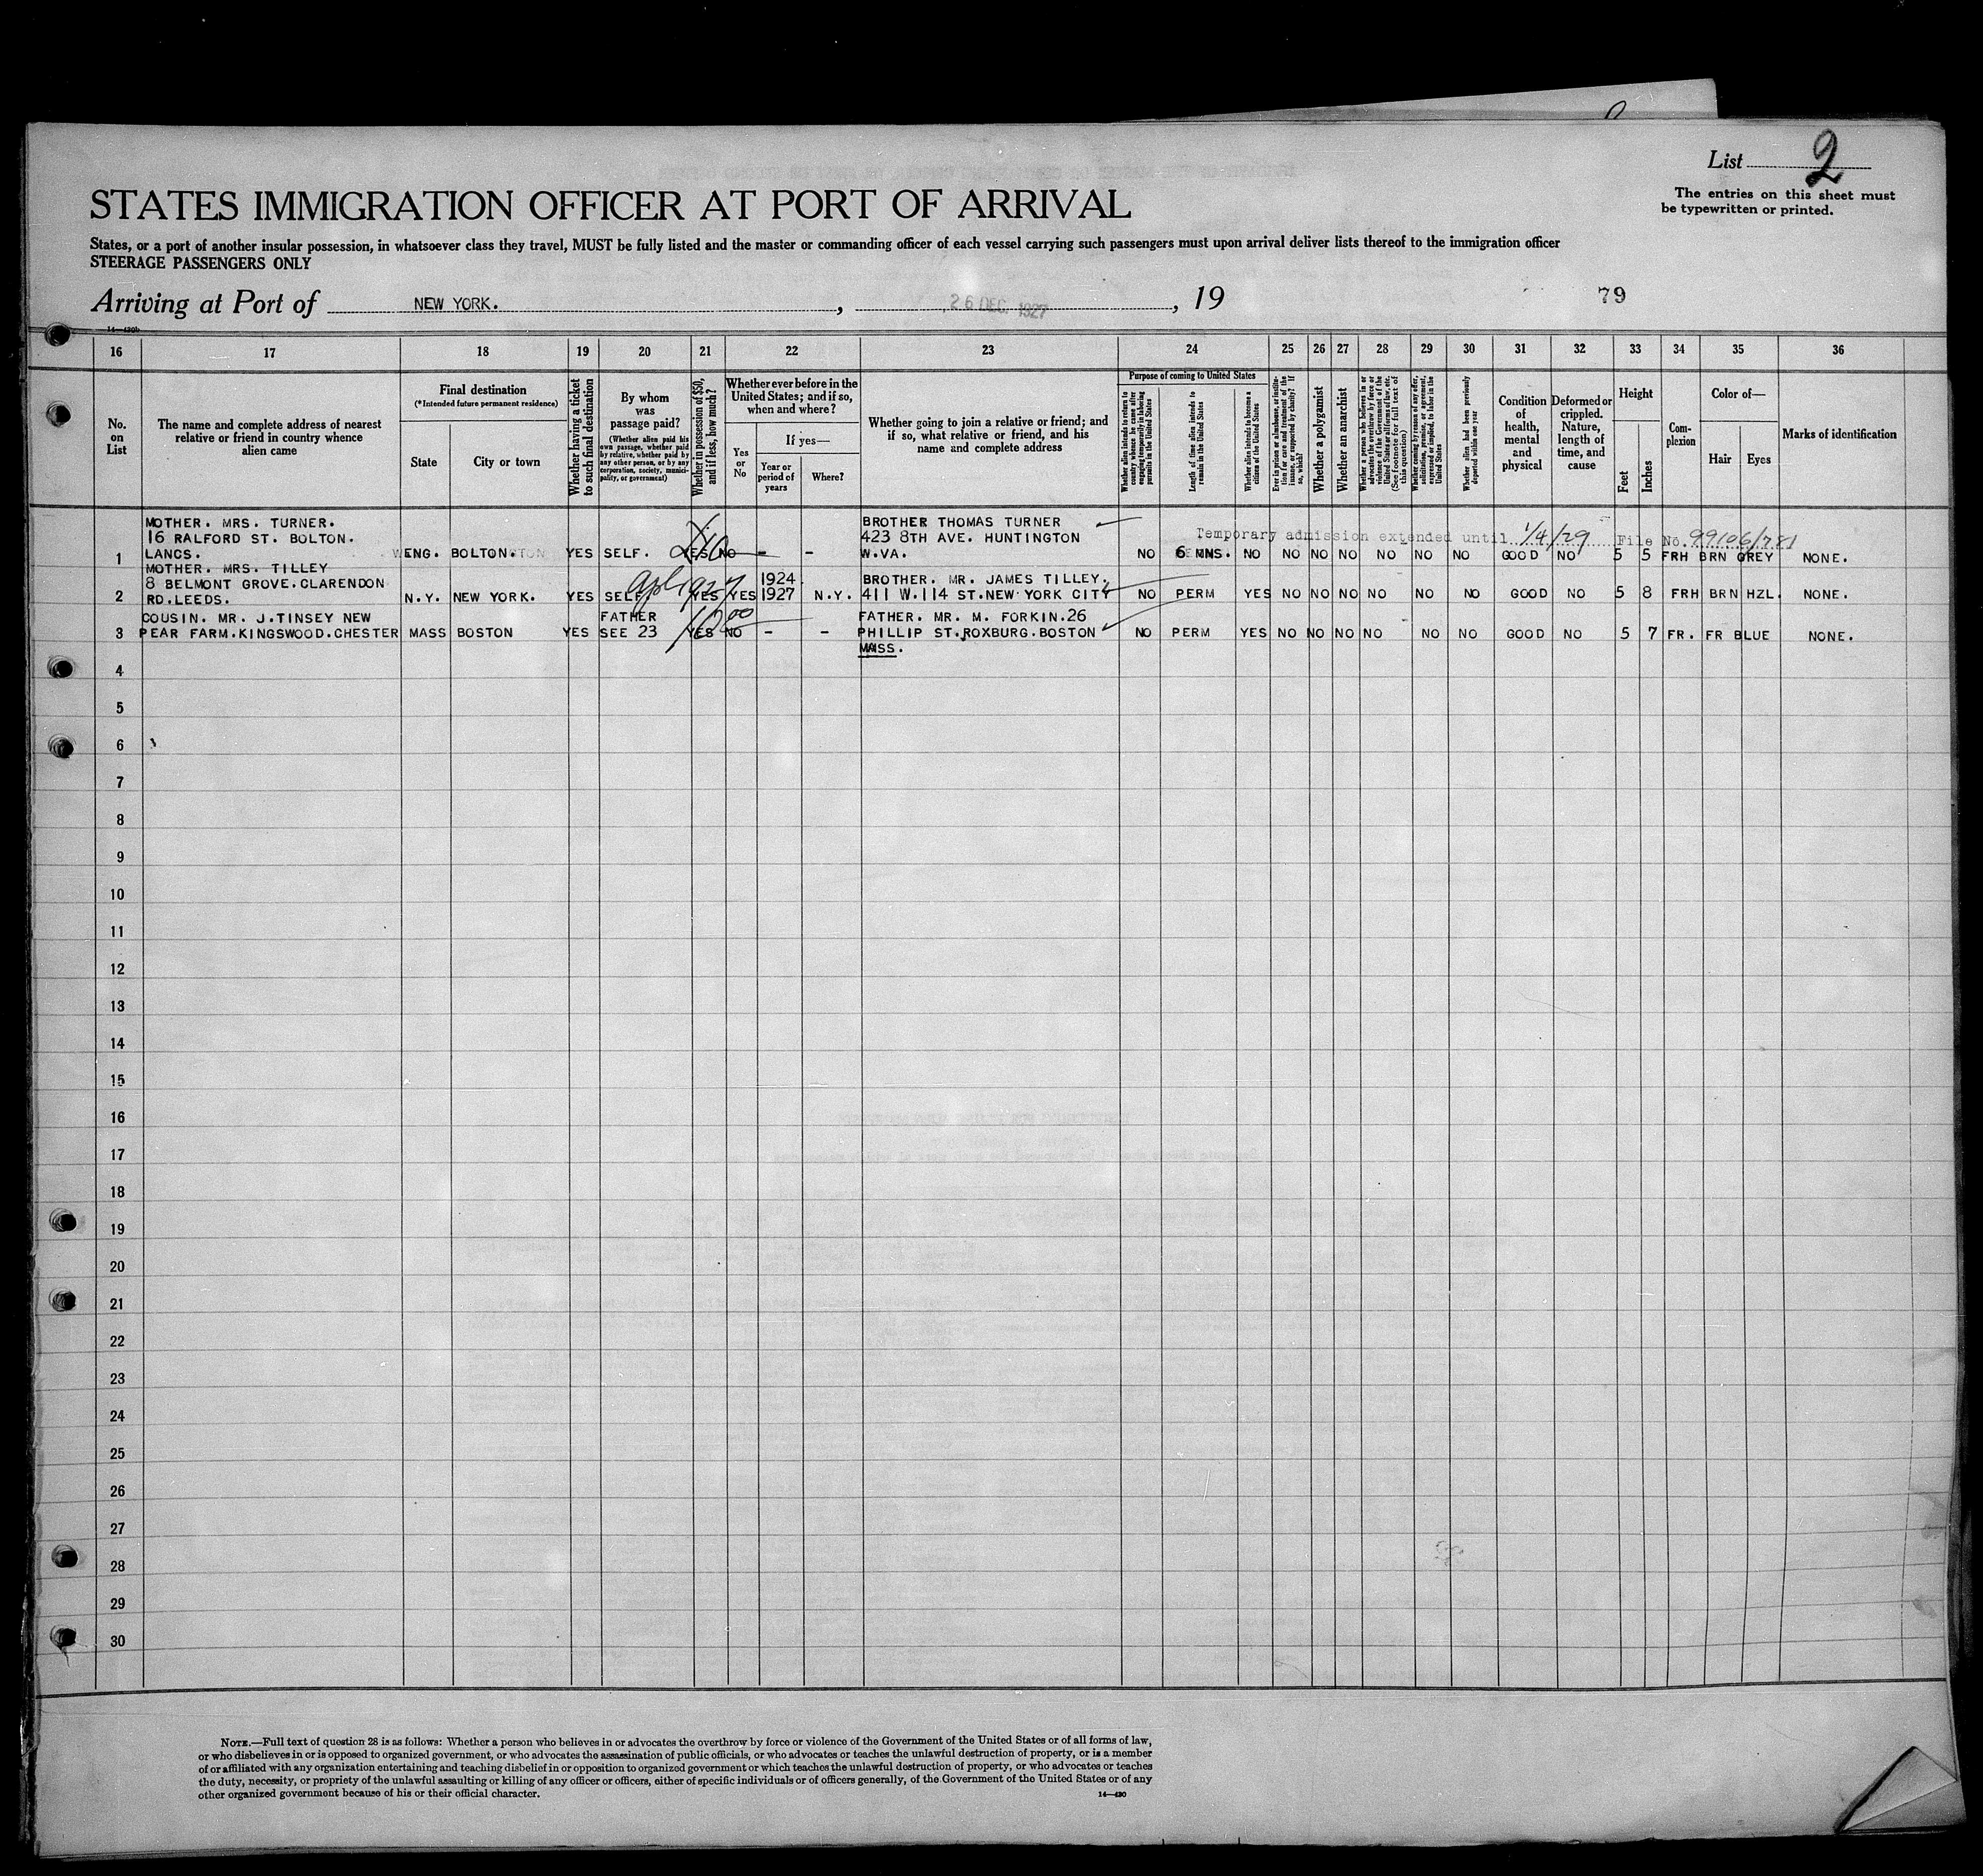 List 2
The entries on this sheet must
be typewritten or printed.
STATES IMMIGRATION OFFICER AT PORT OF ARRIVAL
States, or a port of another insular possession, in whatsoever class they travel, MUST be fully listed and the master or commanding officer of each vessel carrying such passengers must upon arrival deliver lists thereof to the immigration officer
STEERAGE PASSENGERS ONLY
Arriving at Port of NEW YORK. , 26 DEC. 1927 , 19
79
14—430b
16 17 18 19 20 21 22 23 24 25 26 27 28 29 30 31 32 33 34 35 36
No.
on
List
The name and complete address of nearest
relative or friend in country whence
alien came
Final destination
(*Intended future permanent residence)
State
City or town
Whether having a ticket
to such final destination
By whom
was
passage paid?
(Whether alien paid his
own passage, whether paid
by relative, whether paid by
any other person, or by any
corporation, society, munici-
pality, or government)
Whether in possession of $50,
and if less, how much?
Whether ever before in the
United States; and if so,
when and where?
Yes
or
No
If yes—
Year or
period of
years
Where?
Whether going to join a relative or friend; and
if so, what relative or friend, and his
name and complete address
Purpose of coming to United States
Whether alien intends to return to
country whence he came after
engaging temporarily in laboring
pursuits in the United States
Length of time alien intends to
remain in the United States
Whether alien intends to become a
citizen of the United States
Ever in prison or almshouse, or institu-
tion for care and treatment of the
insane, or supported by charity? If
so, which?
Whether a polygamist
Whether an anarchist
Whether a person who believes in or
advocates the overthrow by force or
violence of the Government of the
United States or all forms of law, etc.
(See footnote for full text of
this question)
Whether coming by reason of any offer,
solicitation, promise, or agreement,
expressed or implied, to labor in the
United States
Whether alien had been previously
deported within one year
Condition
of
health,
mental
and
physical
Deformed or
crippled.
Nature,
length of
time, and
cause
Height
Feet
Inches
Com-
plexion
Color of—
Hair
Eyes
Marks of identification
MOTHER. MRS. TURNER.
16 RALFORD ST. BOLTON.
LANCS.
1 ENG. BOLTON. YES SELF. YES NO - - BROTHER THOMAS TURNER
423 8TH AVE. HUNTINGTON
W.VA.
Temporary admission extended until 1/4/29 File No. 99106/781
NO 6 MNS. NO NO NO NO NO NO NO GOOD NO 5 5 FRH BRN GREY NONE.
MOTHER. MRS TILLEY
8 BELMONT GROVE.CLARENDON
RD.LEEDS.
2 N.Y. NEW YORK. YES SELF. YES YES 1924
1927 N.Y. BROTHER. MR. JAMES TILLEY.
411 W.114 ST.NEW YORK CITY NO PERM YES NO NO NO NO NO NO GOOD NO 5 8 FRH BRN HZL. NONE.
COUSIN. MR. J.TINSEY NEW
3 PEAR FARM.KINGSWOOD.CHESTER MASS BOSTON YES FATHER
SEE 23 YES NO - - FATHER. MR. M. FORKIN.26
PHILLIP ST.ROXBURG.BOSTON
MASS.
NO PERM YES NO NO NO NO NO NO GOOD NO 5 7 FR. FR BLUE NONE.
4
5
6
7
8
9
10
11
12
13
14
15
16
17
18
19
20
21
22
23
24
25
26
27
28
29
30
NOTE.—Full text of question 28 is as follows: Whether a person who believes in or advocates the overthrow by force or violence of the Government of the United States or of all forms of law,
or who disbelieves in or is opposed to organized government, or who advocates the assassination of public officials, or who advocates or teaches the unlawful destruction of property, or is a member
of or affiliated with any organization entertaining and teaching disbelief in or opposition to organized government or which teaches the unlawful destruction of property, or who advocates or teaches
the duty, necessity, or propriety of the unlawful assaulting or killing of any officer or officers, either of specific individuals or of officers generally, of the Government of the United States or of any
other organized government because of his or their official character.
14—430